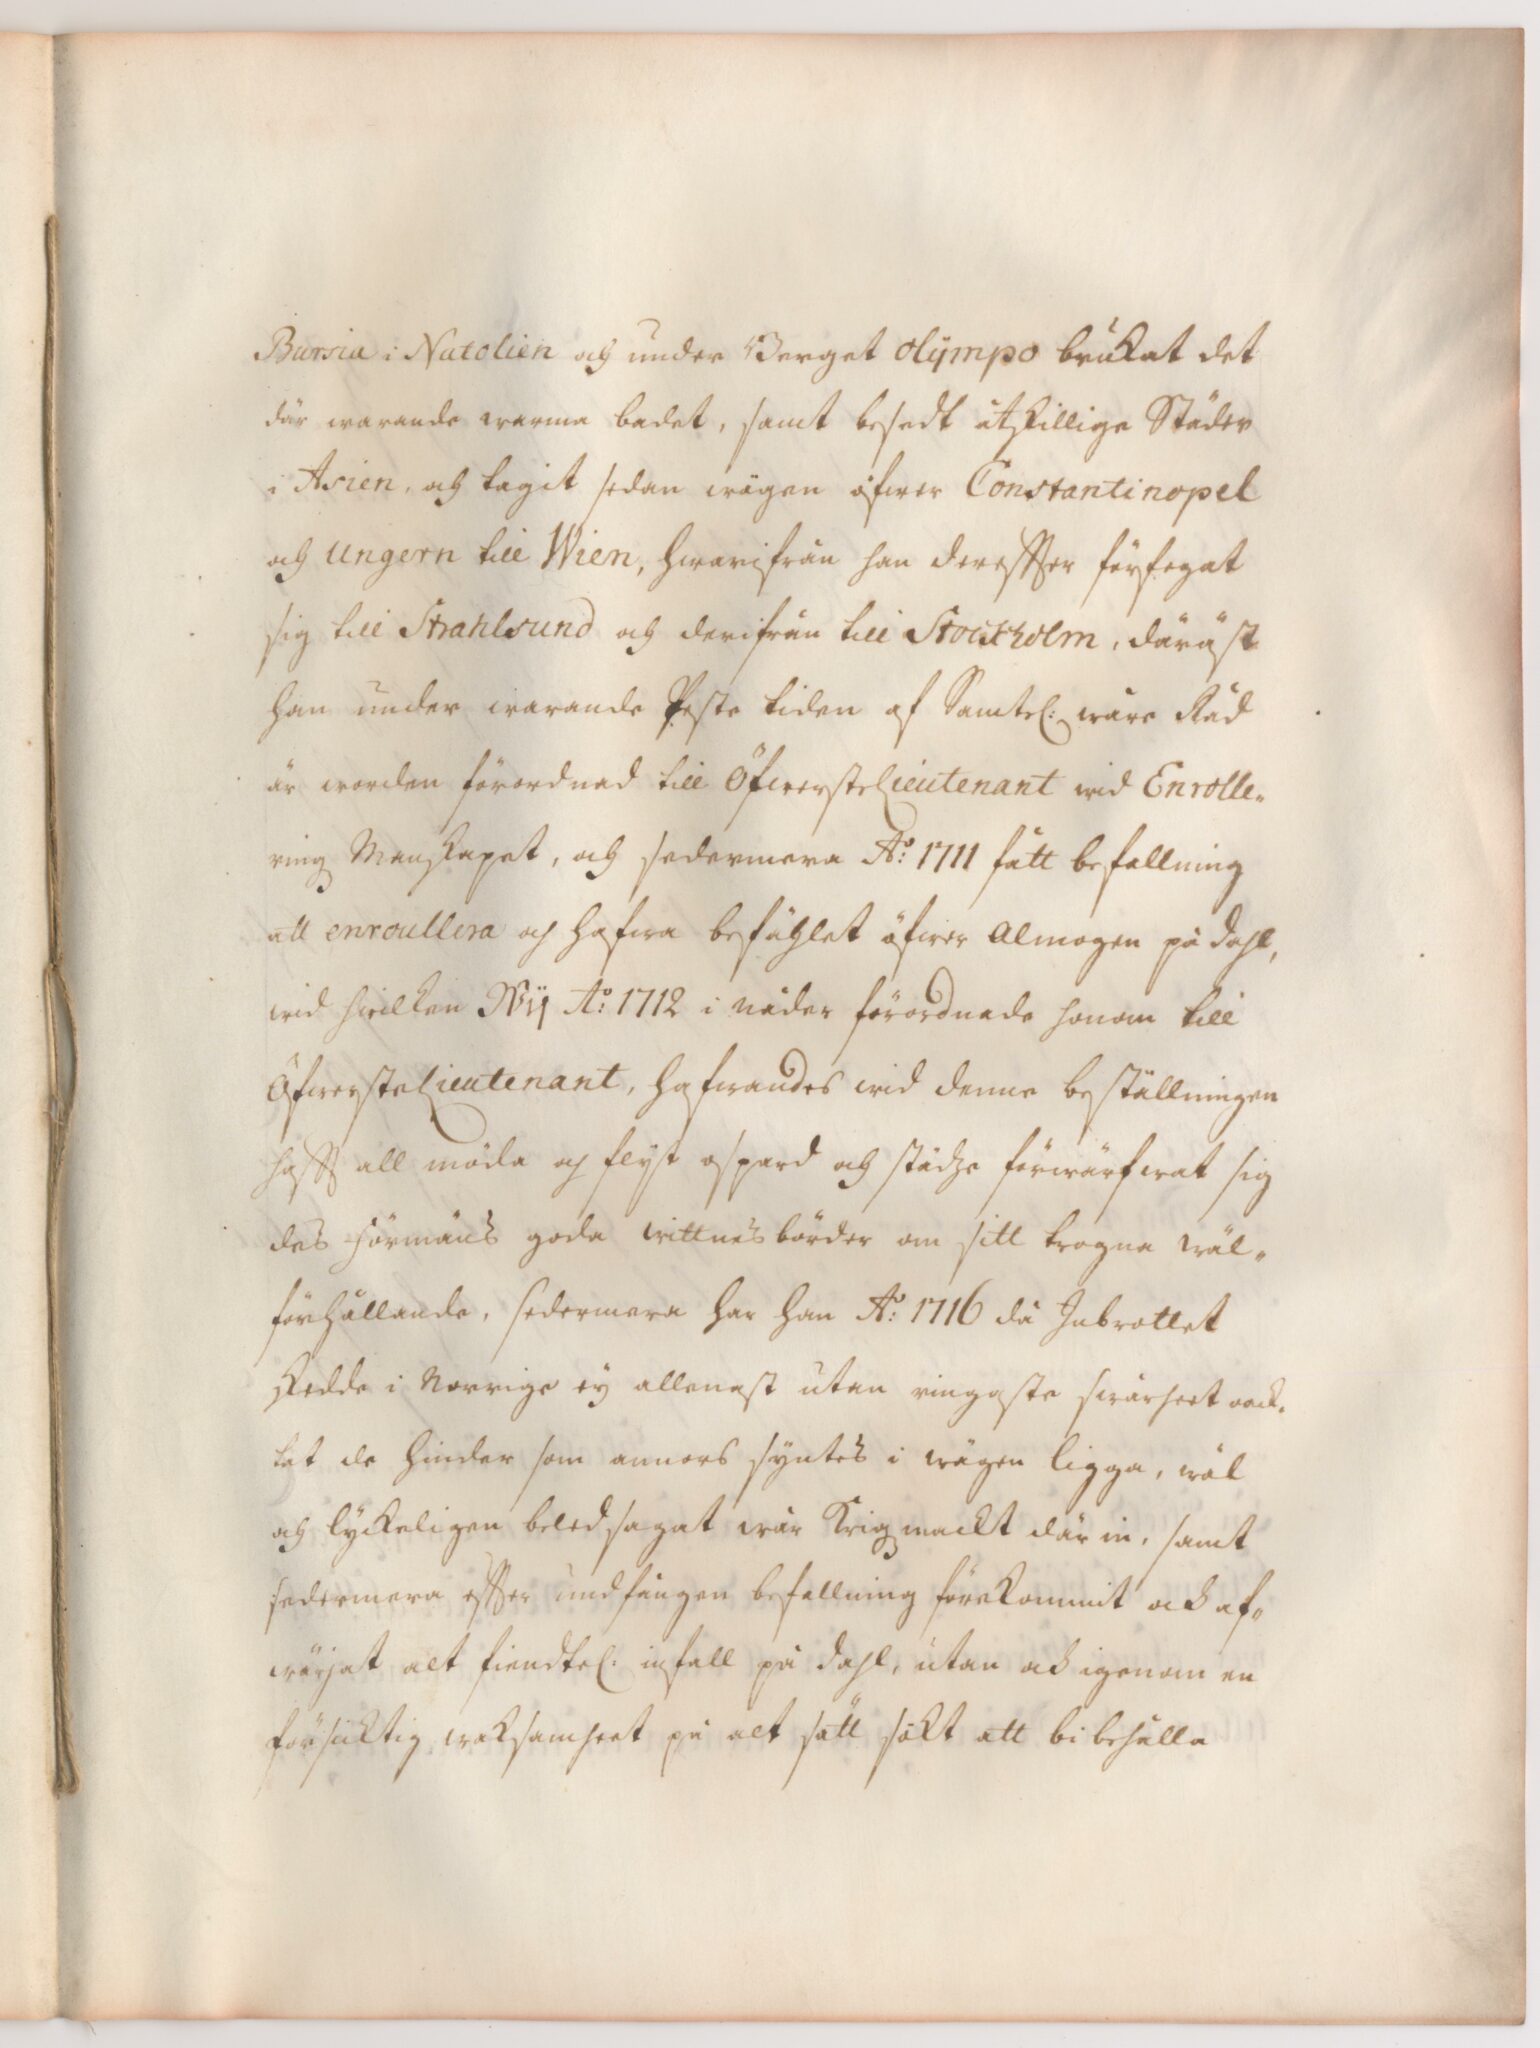 Bursia i Natolien och under Berget olÿmpo brukat det
där warande warma badet, samt besedt åtskillige Städer
i Asien, och tagit sedan wägen öfwer Constantinopel
och Ungern till Wien, hwarifrån han derefter förfogat
sig till Strahlsund och derifrån till Stockholm, däräst
han under warande Peste tiden af Samtel: wåre Råd
är worden förordnad till ÖfwersteLieutenant wid Enrolle-
rings Manskapet, och sedermera A:o 1711 fått befallning
att enroullera och hafwa befählet öfwer Almogen på Dahl,
wid hwilken Wij A:o 1712 i nåder förordnade honom till
ÖfwersteLieutenant, hafwandes wid denne beställningen
haft all möda och flijt ospard och städze förwärfwat sig
des Förmäns goda wittnesbörder om sitt trogna wäl-
förhållande, sedermera har han A:o 1716 då Inbrottet
skedde i Norrige eÿ allenast utan ringaste swårheet
tet de hinder som annors syntes i wägen ligga, wäl
och lyckeligen beledsagat wår Krigzmackt där in, samt
sedermera efter undfången befallning förekommit ock af-
wärjat alt fiendtel: infall på Dahl, utan ock igenom en
försiktig waksamheet på alt sätt sökt att bibehålla